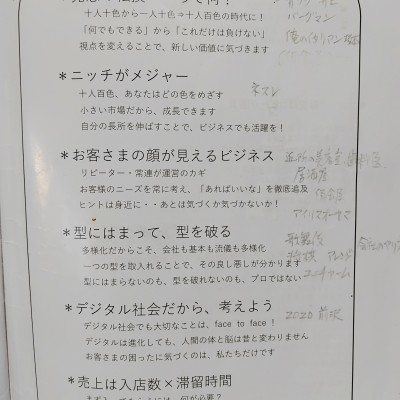 十人十色から一人十色⇒十人百色の時代に！
「何でもできる」から「これだけは負けない」
視点を変えることで、新しい価値に気づきます
＊ニッチがメジャー
十人百色、あなたはどの色をめざす
小さい市場だから、成長できます
自分の長所を伸ばすことで、ビジネスでも活躍を！
＊お客さまの顔が見えるビジネス
リピーター・常連が運営のカギ
居酒屋
お客様のニーズを常に考え、「あればいいな」を徹底追及
ヒントは身近に・・あとは気づくか気づかないか！
アイリスオーヤマ
＊型にはまって、型を破る
多様化だからこそ、会社も基本も流儀も多様化
一つの型を取入れることで、その良し悪しが分かります
型にはまらないのも、型を破れないのも、プロではない
ユニチャーム
＊デジタル社会だから、考えよう
2020 前後
デジタル社会でも大切なことは、face to face！
デジタルは進化しても、人間の体と脳は昔と変わりません
お客さまの困ったに気づくのは、私たちだけです
＊売上は入店数×滞留時間